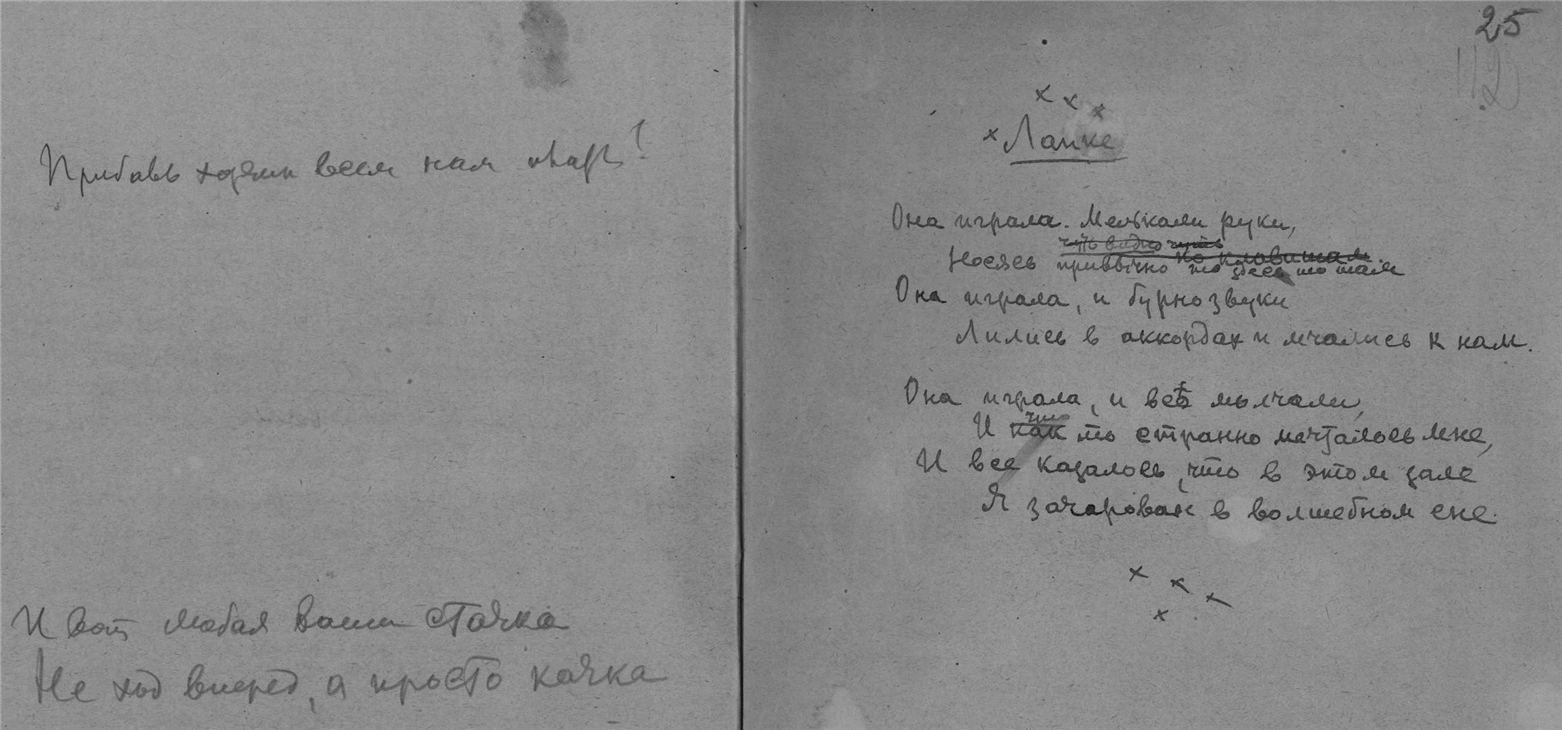 Прибавь хозяин всем нам
И вот любая ваша стачка
Не ход вперед, а просто качка
25
112
х х х
х Лапке
Она играла. Мелькали руки,
чуть видно чуть
Носясь по клавишам
привычно то здесь то там
Она играла, и бурно звуки
Лились в аккордах и мчались к нам.
Она играла, и все молчали,
что
И как то странно мечталось мне,
И все казалось, что в этом зале
Я зачарован в волшебном сне.
х х х
х